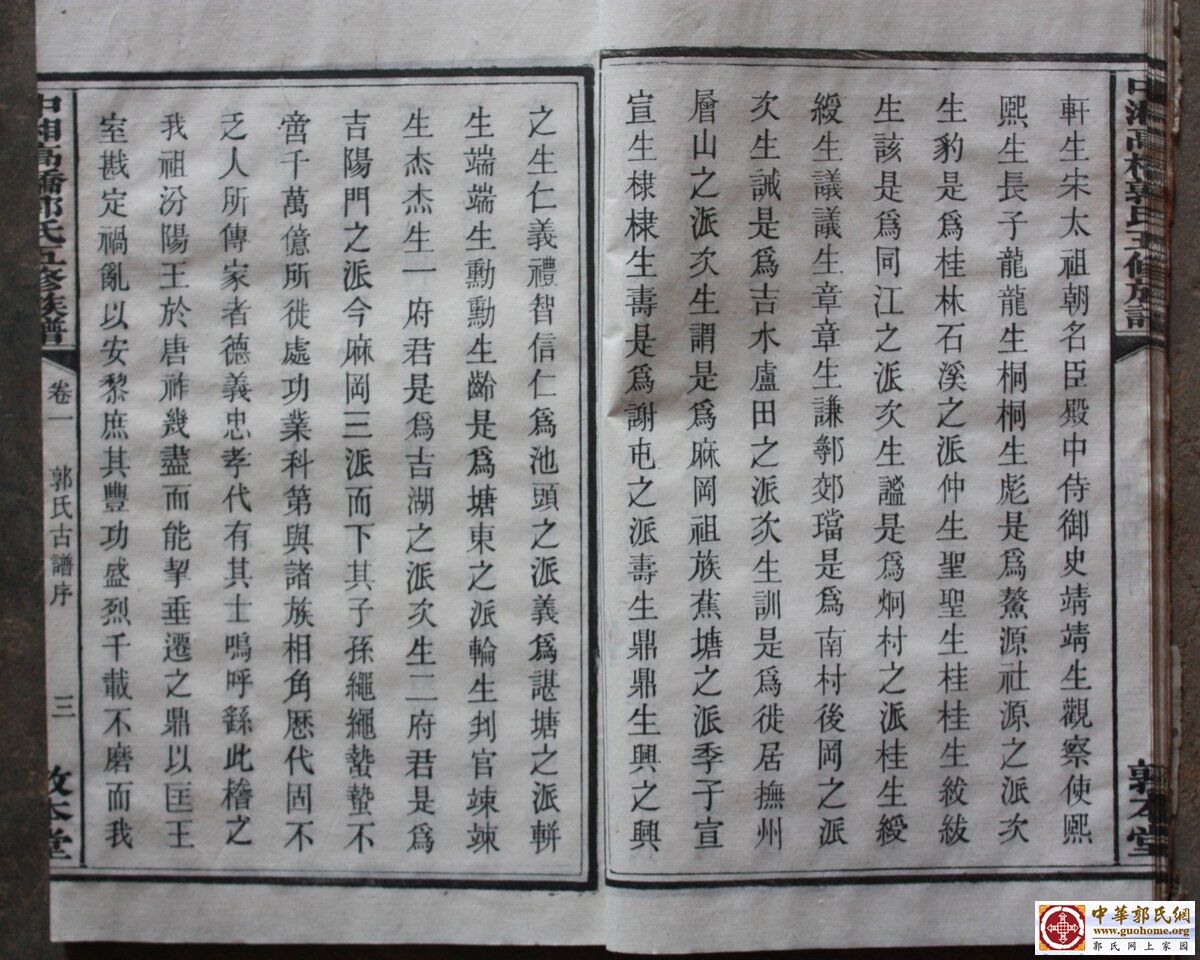 軒生宋太祖朝名臣殿中侍御史靖靖生觀察使熙
熙生長子龍龍生桐桐生彪是爲鰲源社源之派次
生豹是爲桂林石溪之派仲生聖聖生桂桂生紱紱
生該是爲同江之派次生謐是爲炯村之派桂生綬
綬生議議生章章生謙鄣郊璫是爲南村後岡之派
次生誡是爲吉水盧田之派次生訓是爲徙居撫州
層山之派次生謂是爲麻岡祖族蕉塘之派季子宣
宣生棣棣生壽是爲謝屯之派壽生鼎鼎生興之興
之生仁義禮智信仁爲池頭之派義爲諶塘之派輧
生端端生勳勳生齡是爲塘東之派輪生判官竦竦
生杰杰生一府君是爲吉湖之派次生二府君是爲
吉陽門之派今麻岡三派而下其子孫繩繩蟄蟄不
啻千萬億所徙處功業科第與諸族相角歷代固不
乏人所傳家者德義忠孝代有其士嗚呼繇此稽之
我祖汾陽王於唐祚幾盡而能挈垂遷之鼎以匡王
室戡定禍亂以安黎庶其豐功盛烈千載不磨而我
中湘高橋郭氏五修族譜
卷一
郭氏古譜序
三
敦本堂
中華郭氏網
www.guohome.org
郭氏网上家园